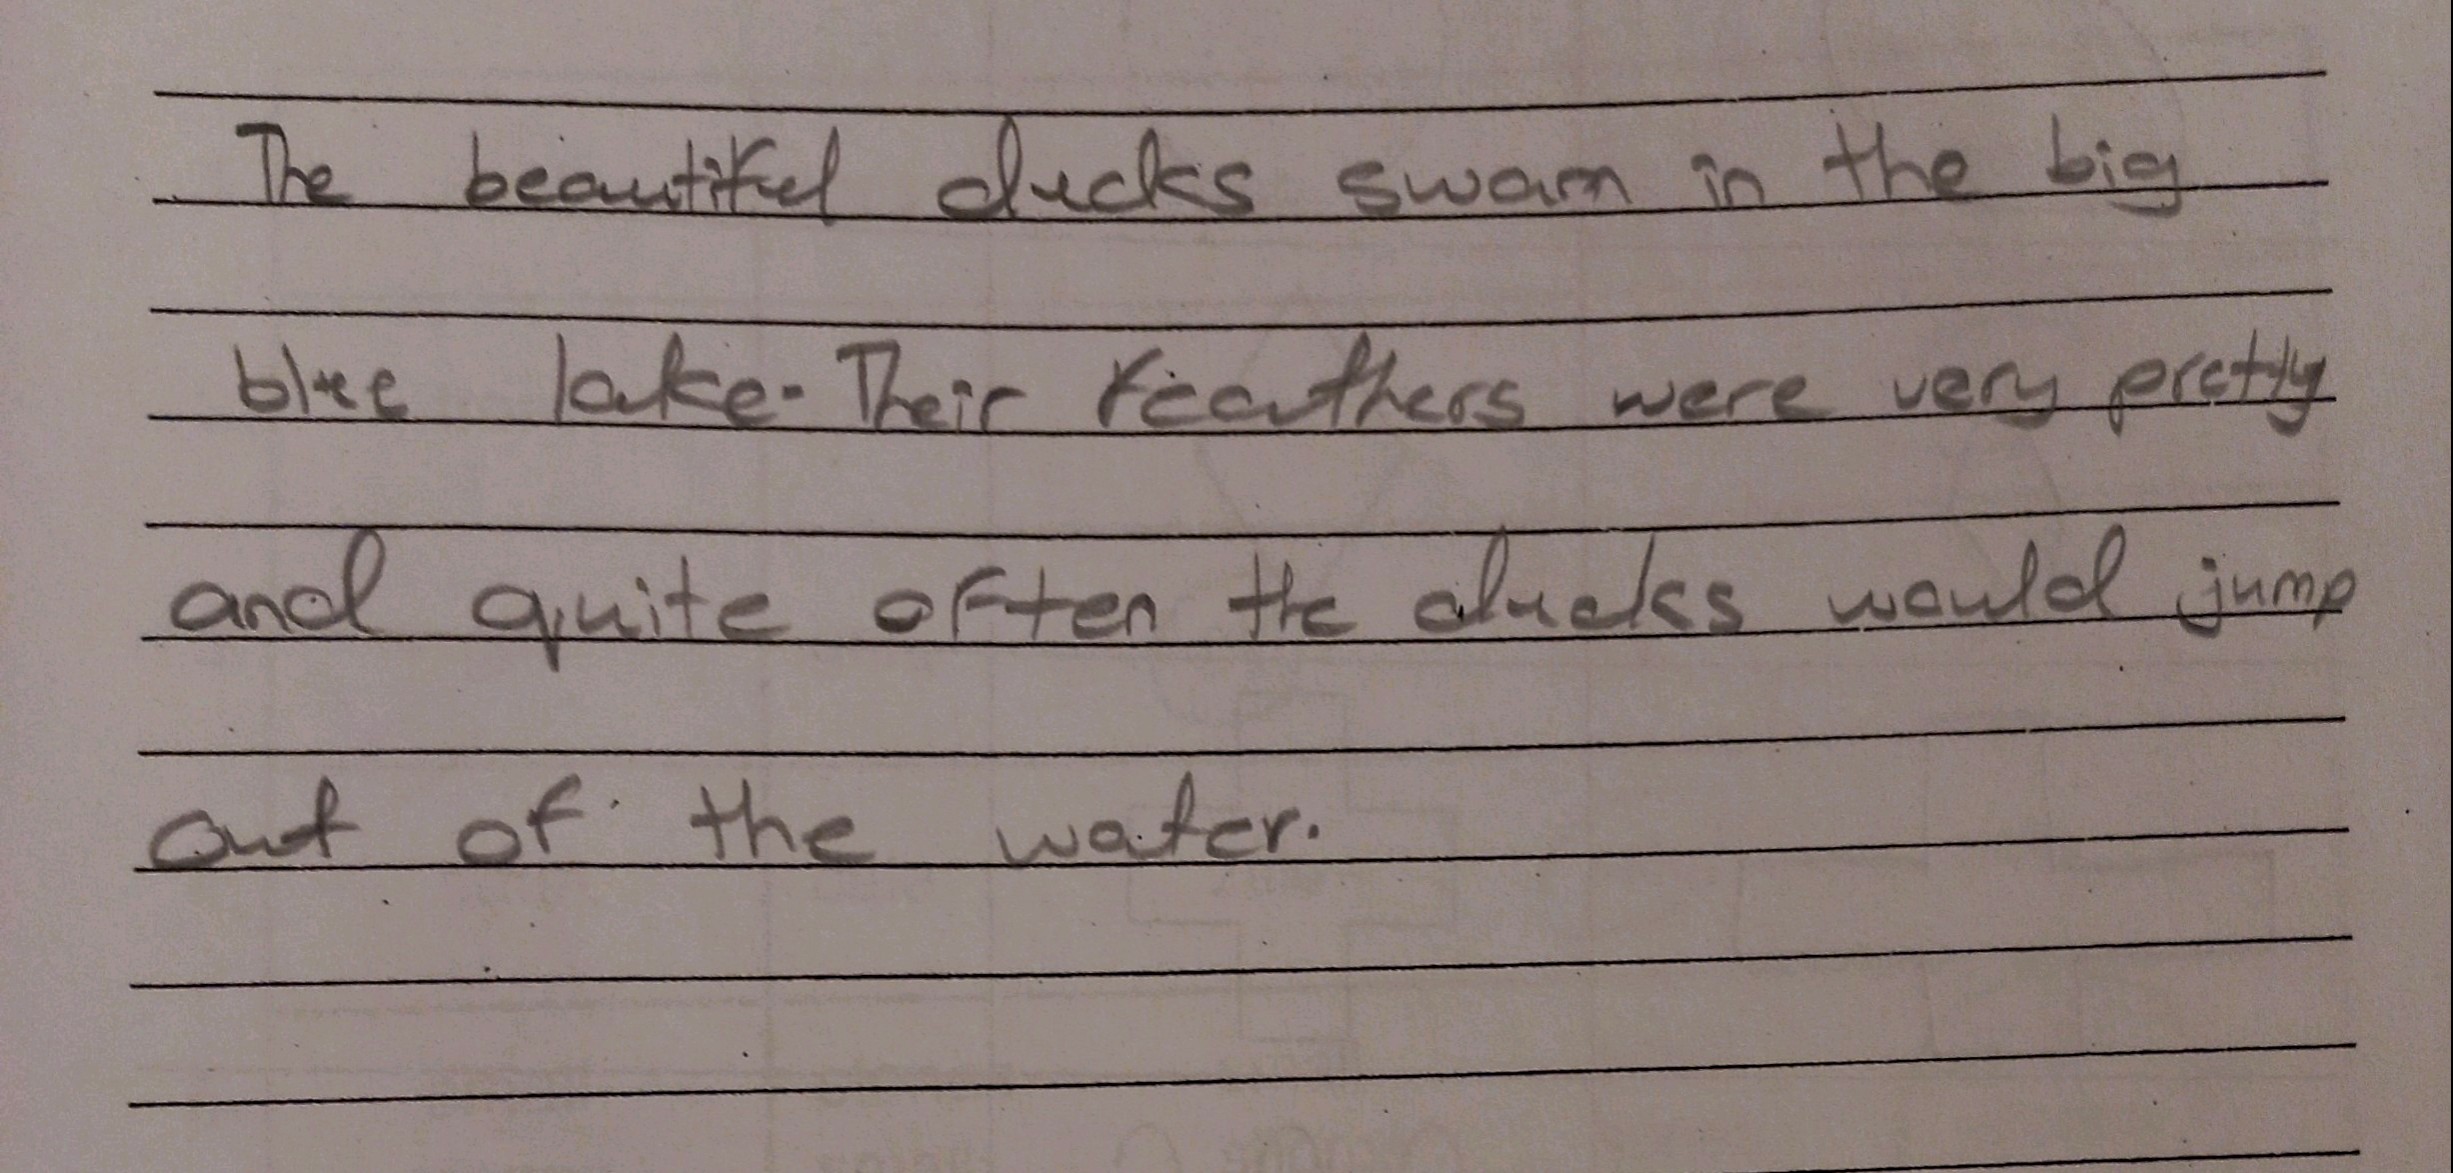 The beautiful ducks swam in the big
blue lake. Their feathers were very pretty
and quite often the ducks would jump
out of the water.